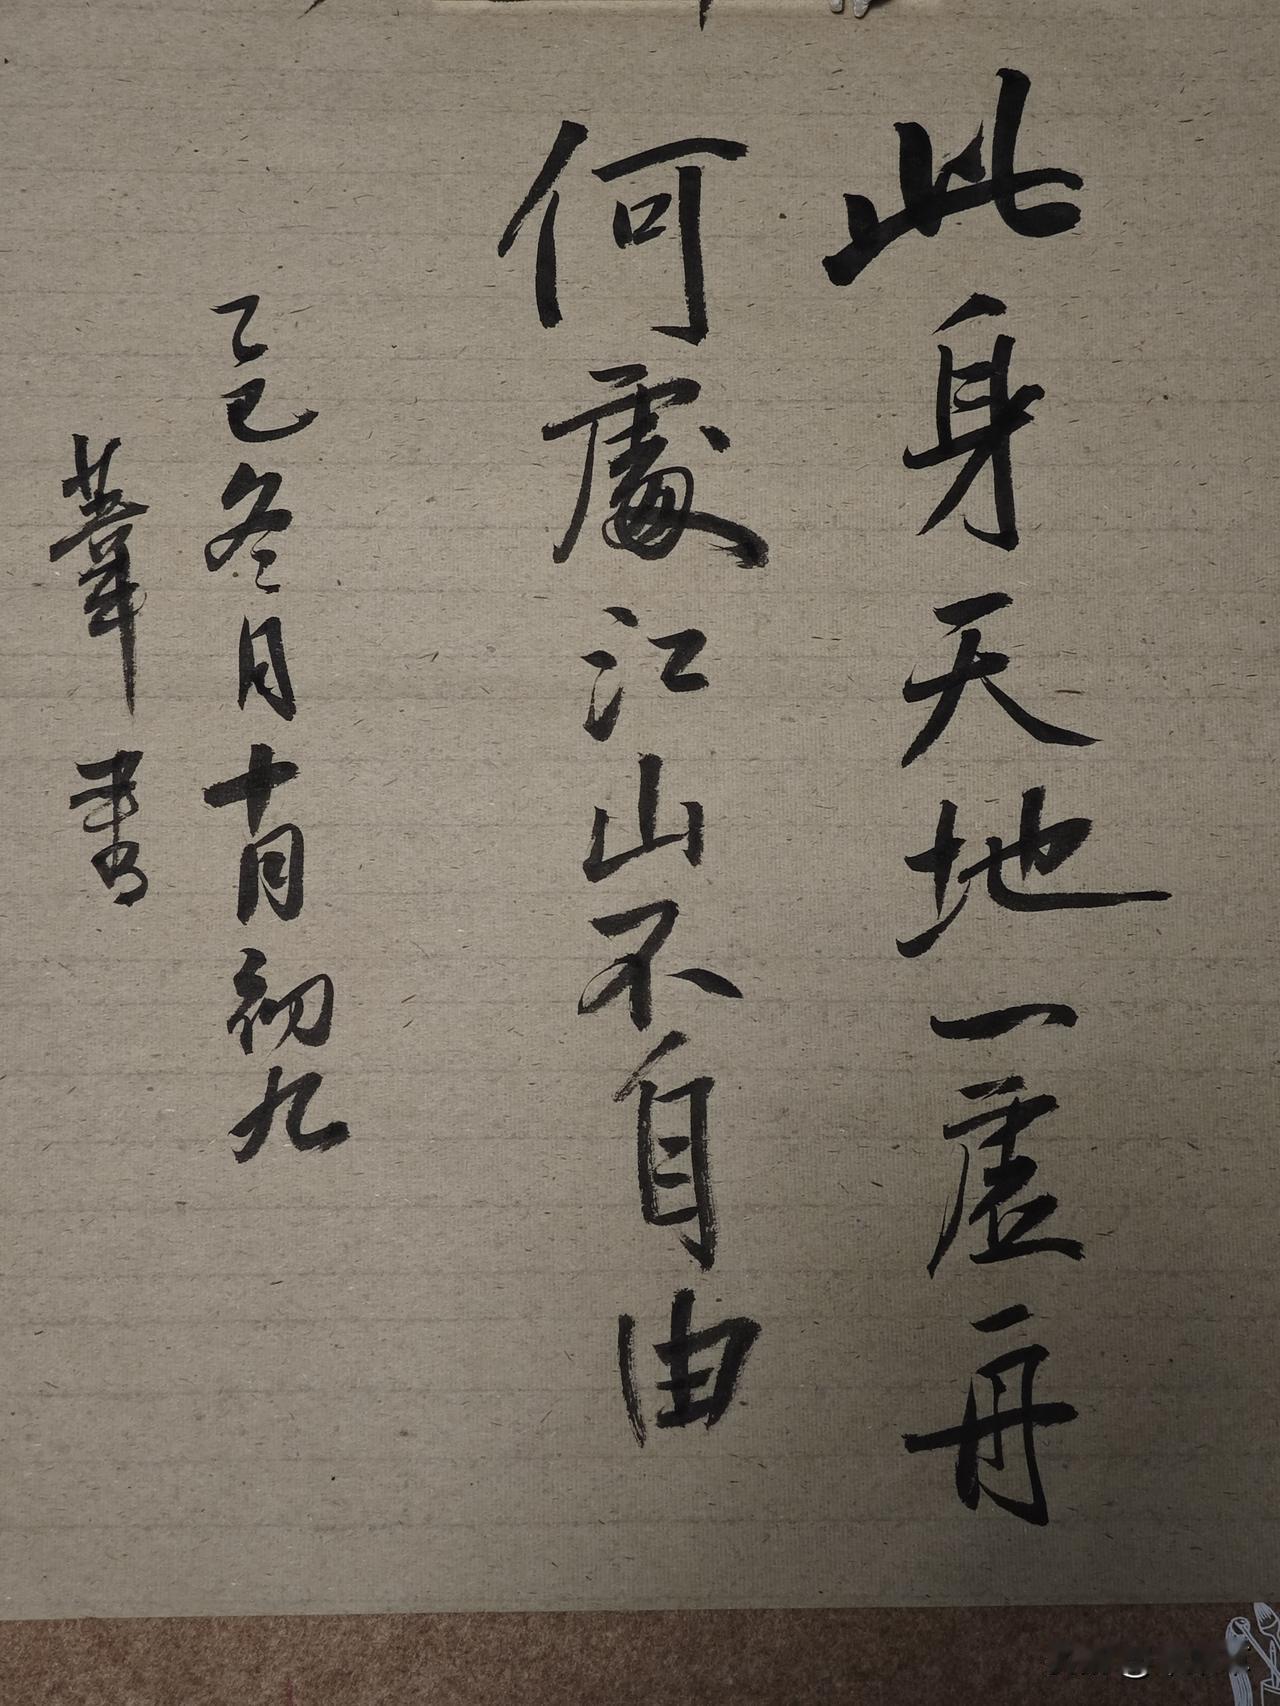 此身天地一虚舟
何處江山不自由
乙巳冬月十月初九
葦書